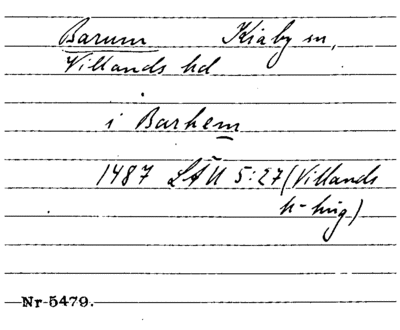 Barum Kiaby sn,
Villands hd
i Barhem
1487 LÄU 5:27 (Villands
h-ting)
Nr 5479.